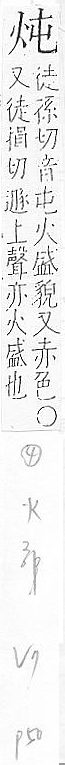 炖
徒孫切音屯火盛貌又赤色○
又徒損切遯上聲亦火盛也
④
火部
V7
P50